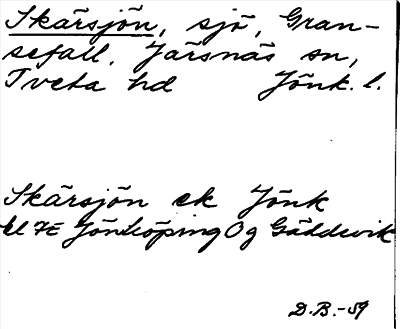 Skärsjön, sjö, Gran-
sefall, Järsnäs sn,
Tveta hd Jönk. l.
Skärsjön ek Jönk
bl 7E Jönköping Og Gäddevik
D.B.-59